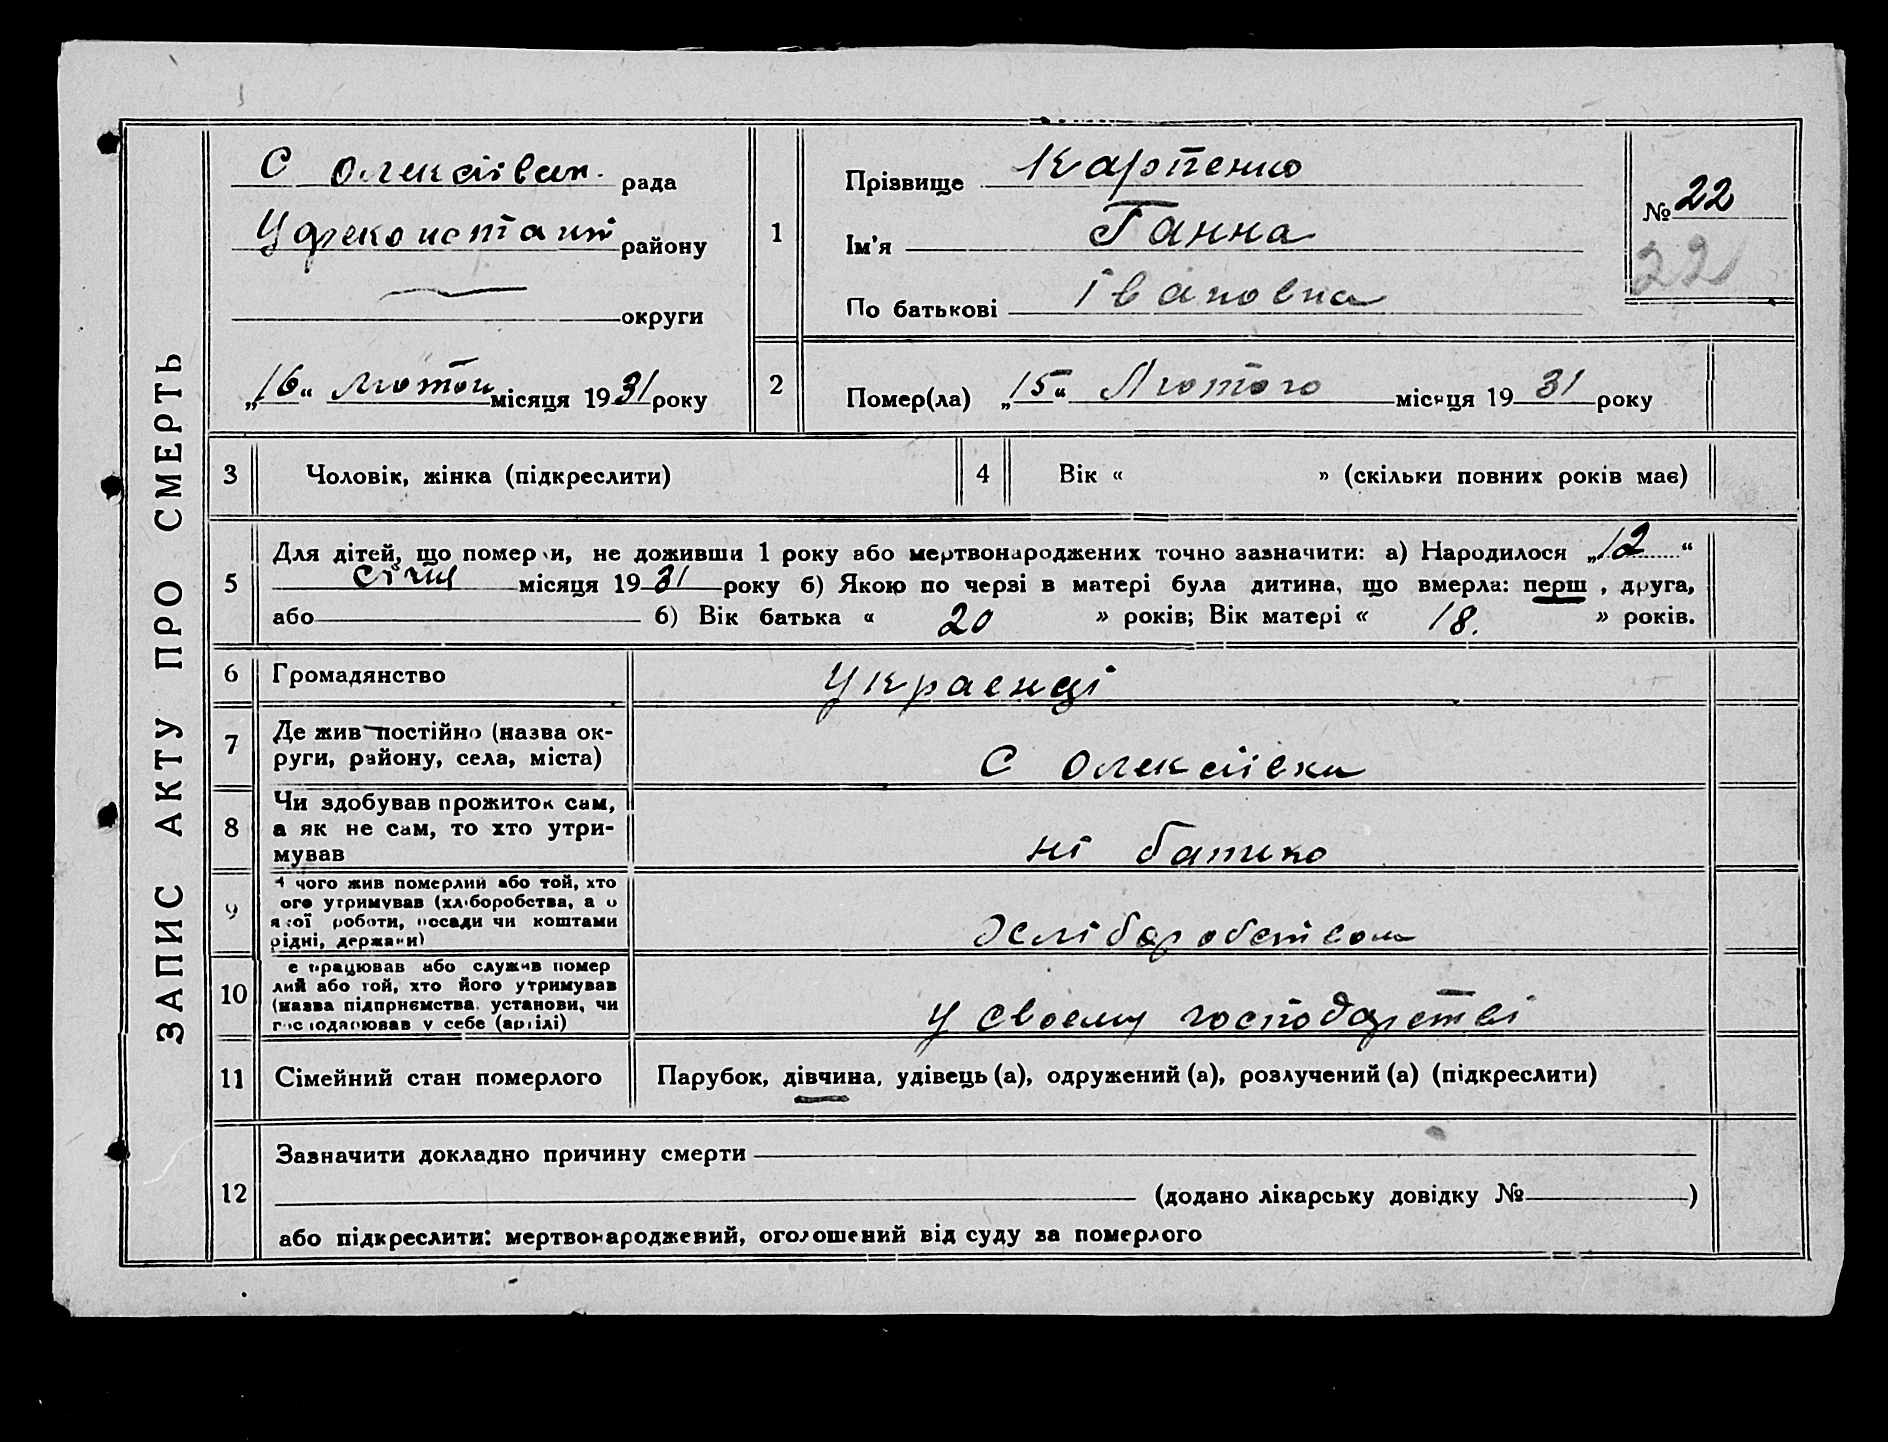 ЗАПИС АКТУ ПРО СМЕРТЬ
С Олексіівал. рада
району
округи
„16“ Лютого місяця 1931 року
1
Прізвище Карпенко
Ім'я Ганна
По батькові Івановна
№ 22
22
2
Помер(ла) „15“ Лютого місяця 1931 року
3 Чоловік, жінка (підкреслити)
4 Вік « » (скільки повних років має)
5
Для дітей, що померли, не доживши 1 року або мертвонароджених точно зазначити: а) Народилося „12“
Січня місяця 1931 року б) Якою по черзі в матері була дитина, що вмерла: перш , друга,
або б) Вік батька « 20 » років; Вік матері « 18. » років.
6 Громадянство Украенці
7
Де жив постійно (назва ок-
руги, району, села, міста) С Олексіівки
8
Чи здобував прожиток сам,
а як не сам, то хто утри-
мував ні батько
9
чого жив померлий або той, хто
ого утримував (хліборобства, а о
якої роботи, посади чи коштами
рідні, держави) Хліборобством
10
е працював або служив помер
лий або той, хто його утримував
(назва підприємства, установи, чи
господарював у себе (артілі) у своему господарстві
11 Сімейний стан померлого Парубок, дівчина, удівець (а), одружений (а), розлучений (а) (підкреслити)
12
Зазначити докладно причину смерти
(додано лікарську довідку № )
або підкреслити: мертвонароджений, оголошений від суду за померлого